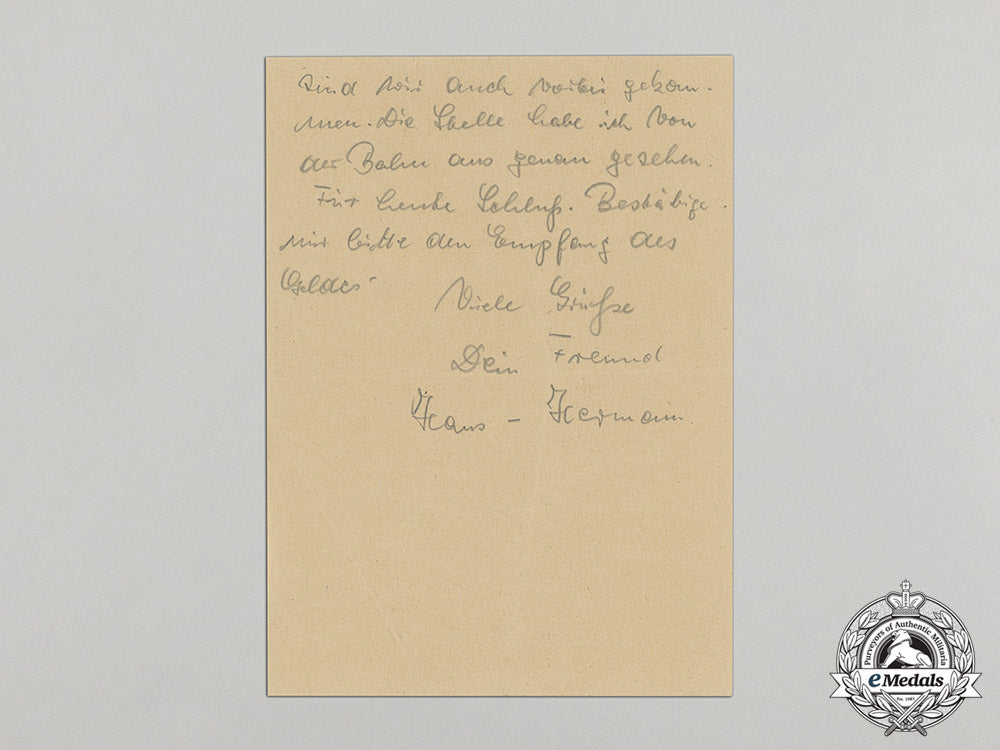 sind wir auch vorbei gekom-
men. Die Stelle habe ich von
der Bahn aus genau gesehen.
Für heute Schluß. Bestätige
mir bitte den Empfang des
Geldes.
Viele Grüße
Dein Freund
Hans - Hermann
Purveyors of Authentic Militaria
eMedals
Est. 1985